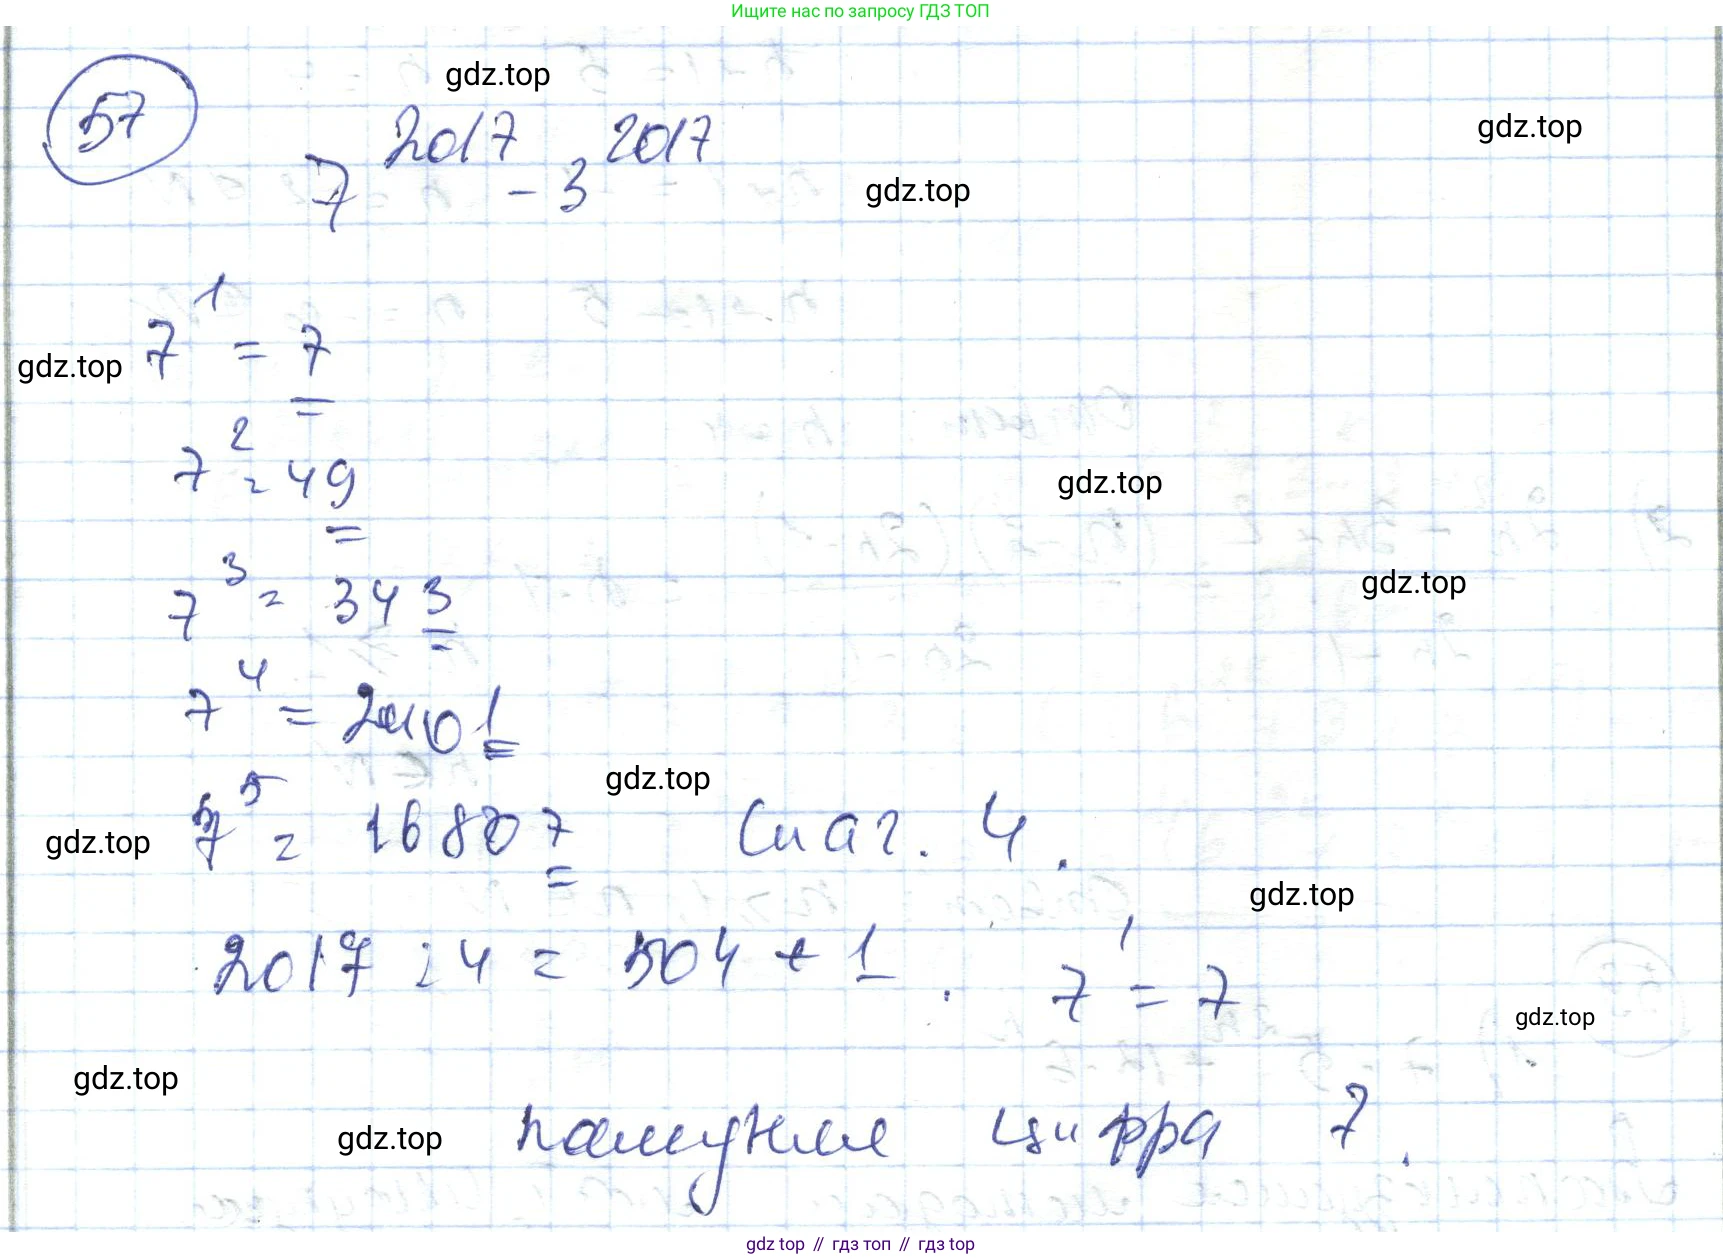 Ищите нас по запросу ГДЗ ТОП
57
gdz.top
7^2017 - 3^2017
gdz.top
gdz.top
7^1 = 7
gdz.top
7^2 = 49
gdz.top
7^3 = 343
gdz.top
7^4 = 2401
gdz.top
7^5 = 16807 шаг. 4.
gdz.top
gdz.top
2017 : 4 = 504 + 1. 7^1 = 7
gdz.top
gdz.top
цифра 7.
gdz.top
gdz top // гдз топ // гдз top